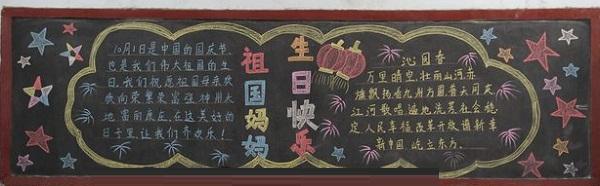 10月1日是中国的国庆节
也是我们伟大祖国的生
日。我们祝愿祖国母亲欢
欣向荣繁荣富强神州大
地富而康庄。在这美好的
日子里让我们齐欢乐！
祖国妈妈
生日快乐
沁园春
万里晴空，壮丽山河，赤
旗飘扬看九州方圆普天同庆
江河歌唱遍地流芳社会稳
定人民幸福改革开放谱新章
新中国屹立东方。